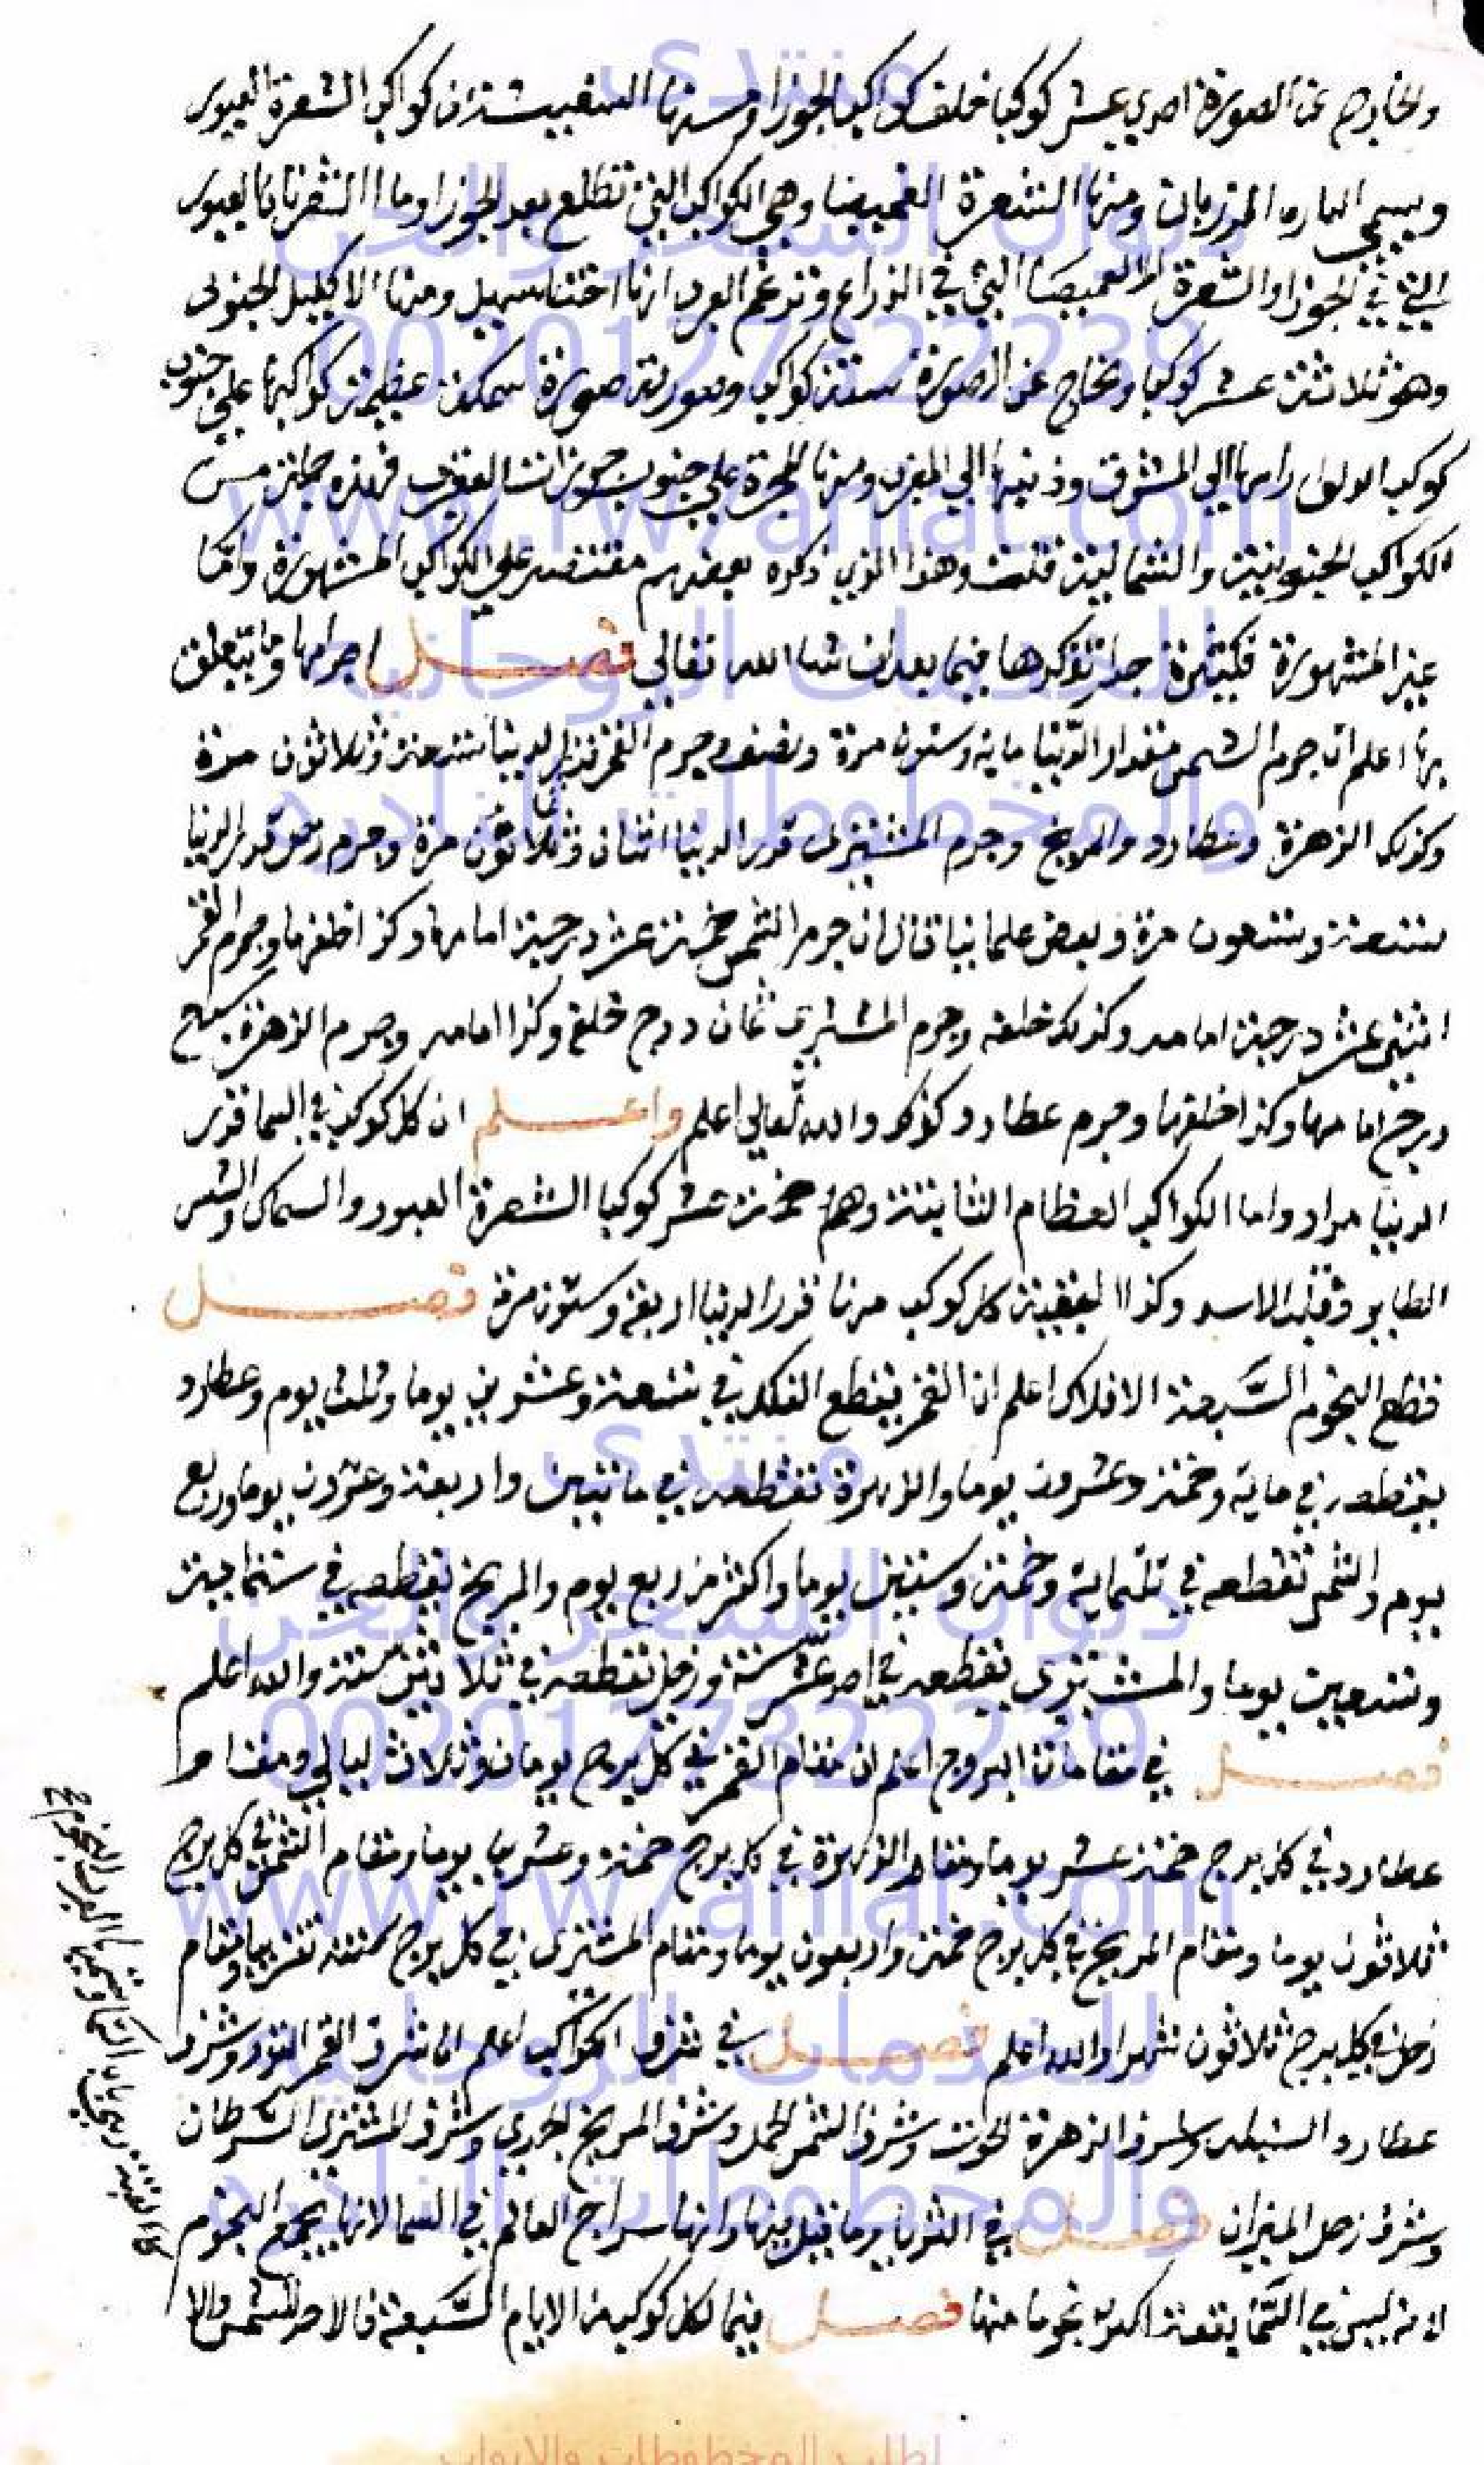 والخارج عن الصورة احدي عشر كوكبا خلف كواكب الجوزا ومنها السفينة كواكب الشعرة العبور
ويسمي المرزمان ومنها الشعرة الغميصا وهي الكواكب التي تطلع بعد الجوزا وما الشعرتان العبور
التي في الجوزا والشعرة الغميصا التي في الذراع وتزعم العرب انها اختا سهيل ومنها الاكليل الجنوبي
وهو ثلاثة عشر كوكبا وخارج عن الصورة ستة كواكب وصورته صورة سمكة عظيمة كواكبها علي جنوب
كوكب الدلو راسها الي المشرق وذنبها الي المغرب ومنها المجرة علي جنوب العقرب فهذه جملة من
الكواكب الجنوبية والشمالية قلت وهذا الذي ذكره بعضهم مقتصر علي الكواكب المشهورة واما
غير المشهورة فكثيرة جدا نذكرها فيما بعد ان شا الله تعالي فصل اجرامها وما يتعلق
بها اعلم ان جرم الشمس مقدار الدنيا ماية وستون مرة ونصف وجرم القمر قدر الدنيا تسعة وثلاثون مرة
وكذلك الزهرة وعطارد والمريخ وجرم المشتري قدر الدنيا اثنان وثلاثون مرة وجرم زحل قدر الدنيا
تسعة وتسعون مرة وبعض علمائنا قال ان جرم الشمس خمسة عشر درجة امامها وكذا خلفها وجرم القمر
اثني عشر درجة امامه وكذلك خلفه وجرم المشتري ثمان درج خلفه وكذا امامه وجرم الزهرة سبع
درج امامها وكذا خلفها وجرم عطارد كذلك والله تعالي اعلم واعلم ان كل كوكب في السما قدر
الدنيا مرار واما الكواكب العظام الثابتة وهم خمسة عشر كوكبا الشعرة العبور والسماك والنسر
الطاير وقلب الاسد وكذا البقية كل كوكب منها قدر الدنيا اربعة وستون مرة فصل
قطع النجوم السبعة الافلاك اعلم ان القمر يقطع الفلك في تسعة وعشرين يوما وثلث يوم وعطارد
يقطعه في ماية وخمسة وعشرون يوما والزهرة تقطعه في مائتين واربعة وعشرون يوما وربع
يوم والشمس تقطعه في ثلثماية وخمسة وستين يوما واكثر من ربع يوم والمريخ يقطعه في ستماية
وتسعين يوما والمشتري يقطعه في احد عشر سنة وزحل يقطعه في ثلاثين سنة والله اعلم
فصل في مقامات البروج اعلم ان مقام القمر في كل برج يومان وثلاث ليالي ومقام
عطارد في كل برج خمسة عشر يوما ومقام الزهرة في كل برج خمسة وعشرين يوما ومقام الشمس في كل برج
ثلاثون يوما ومقام المريخ في كل برج خمسة واربعون يوما ومقام المشتري في كل برج سنة تقريبا ومقام
زحل في كل برج ثلاثون شهرا والله اعلم فصل في شرف الكواكب اعلم ان شرف القمر الثور وشرف
عطارد السنبله وشرف الزهرة الحوت وشرف الشمس الحمل وشرف المريخ الجدي وشرف المشتري السرطان
وشرف زحل الميزان فصل في الثريا وما قيل فيها وانها سراج العالم في السما لانها تجمع النجوم
لانه ليس في السما بقعة اكثر نجوما منها فصل فيما لكل كوكب من الايام السبعة فالاحد للشمس والا
منتدى
ديوان السحر والجن
00201127322239
www.rw7aniat.com
للخدمات الروحانية
والمخطوطات النادره
منتدى
ديوان السحر والجن
00201127322239
www.rw7aniat.com
للخدمات الروحانية
والمخطوطات النادره
لطلب المخطوطات والابواب